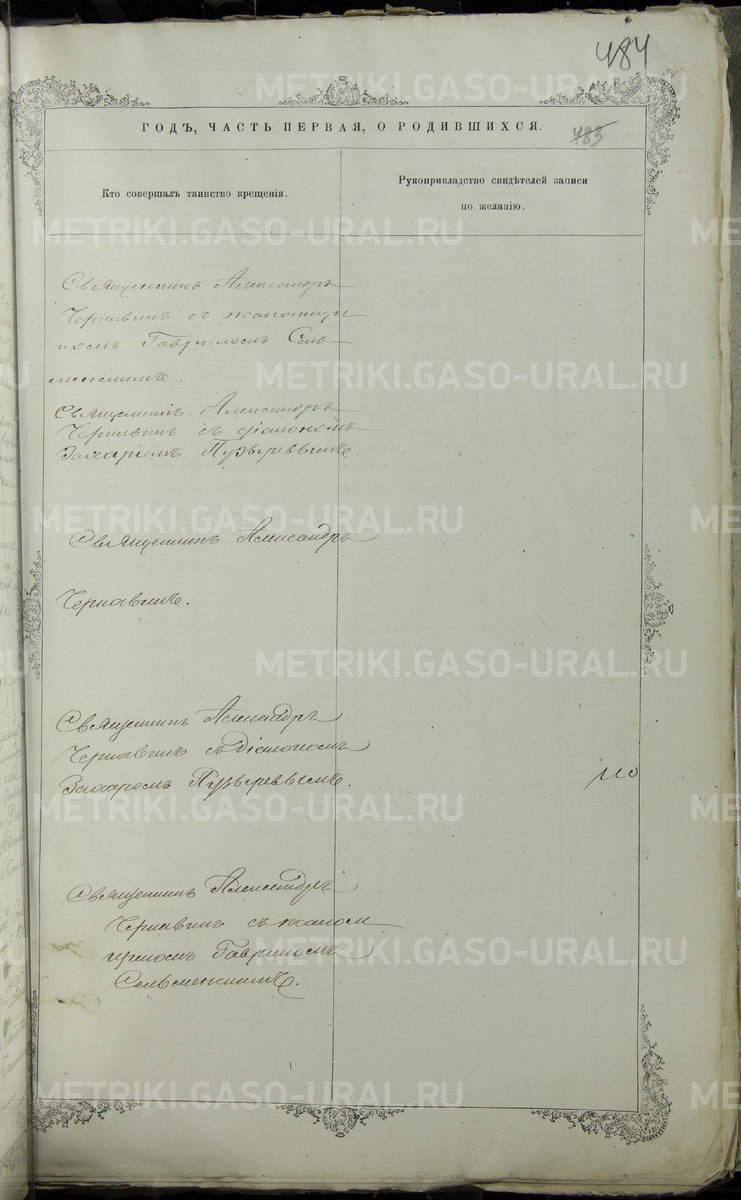 484
ГОДЪ, ЧАСТЬ ПЕРВАЯ, О РОДИВШИХСЯ.
483
Кто совершалъ таинство крещенія.
Рукоприкладство свидѣтелей записи
по желанію.
Священникъ Александръ
Чернавинъ съ псаломщи
комъ Гавріиломъ Сель
менскимъ.
Священникъ Александръ
Чернавинъ съ діакономъ
Захаріемъ Пузыревымъ.
Священникъ Александръ
Чернавинъ.
Священникъ Александръ
Чернавинъ съ діакономъ
Захаромъ Пузыревымъ.
Священникъ Александръ
Чернавинъ съ псалом
щикомъ Гавриломъ
Сельменскимъ.
METRIKI.GASO-URAL.RU